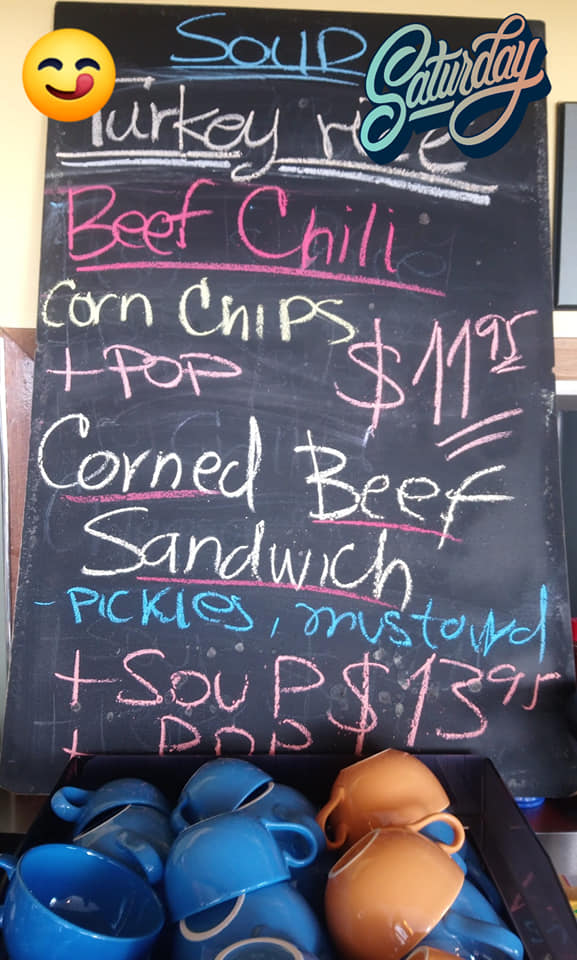 Soup
Saturday
Turkey rice
Beef Chili
Corn Chips
+ POP $11.95
Corned Beef
Sandwich
- PICKLES, mustard
+ SOUP $13.95
+ POP